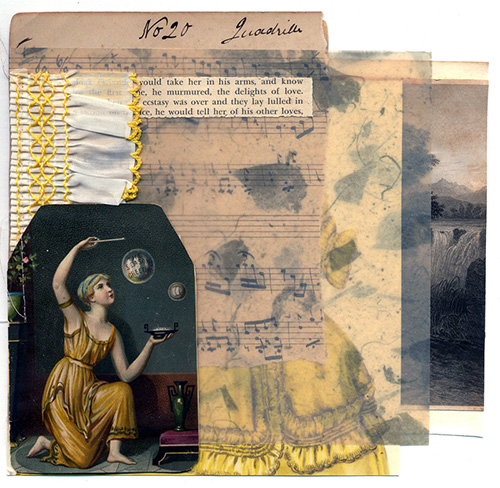 No 20 Quadrille
would take her in his arms, and know
he, he murmured, the delights of love.
ecstasy was over and they lay lulled in
ice, he would tell her of his other loves,